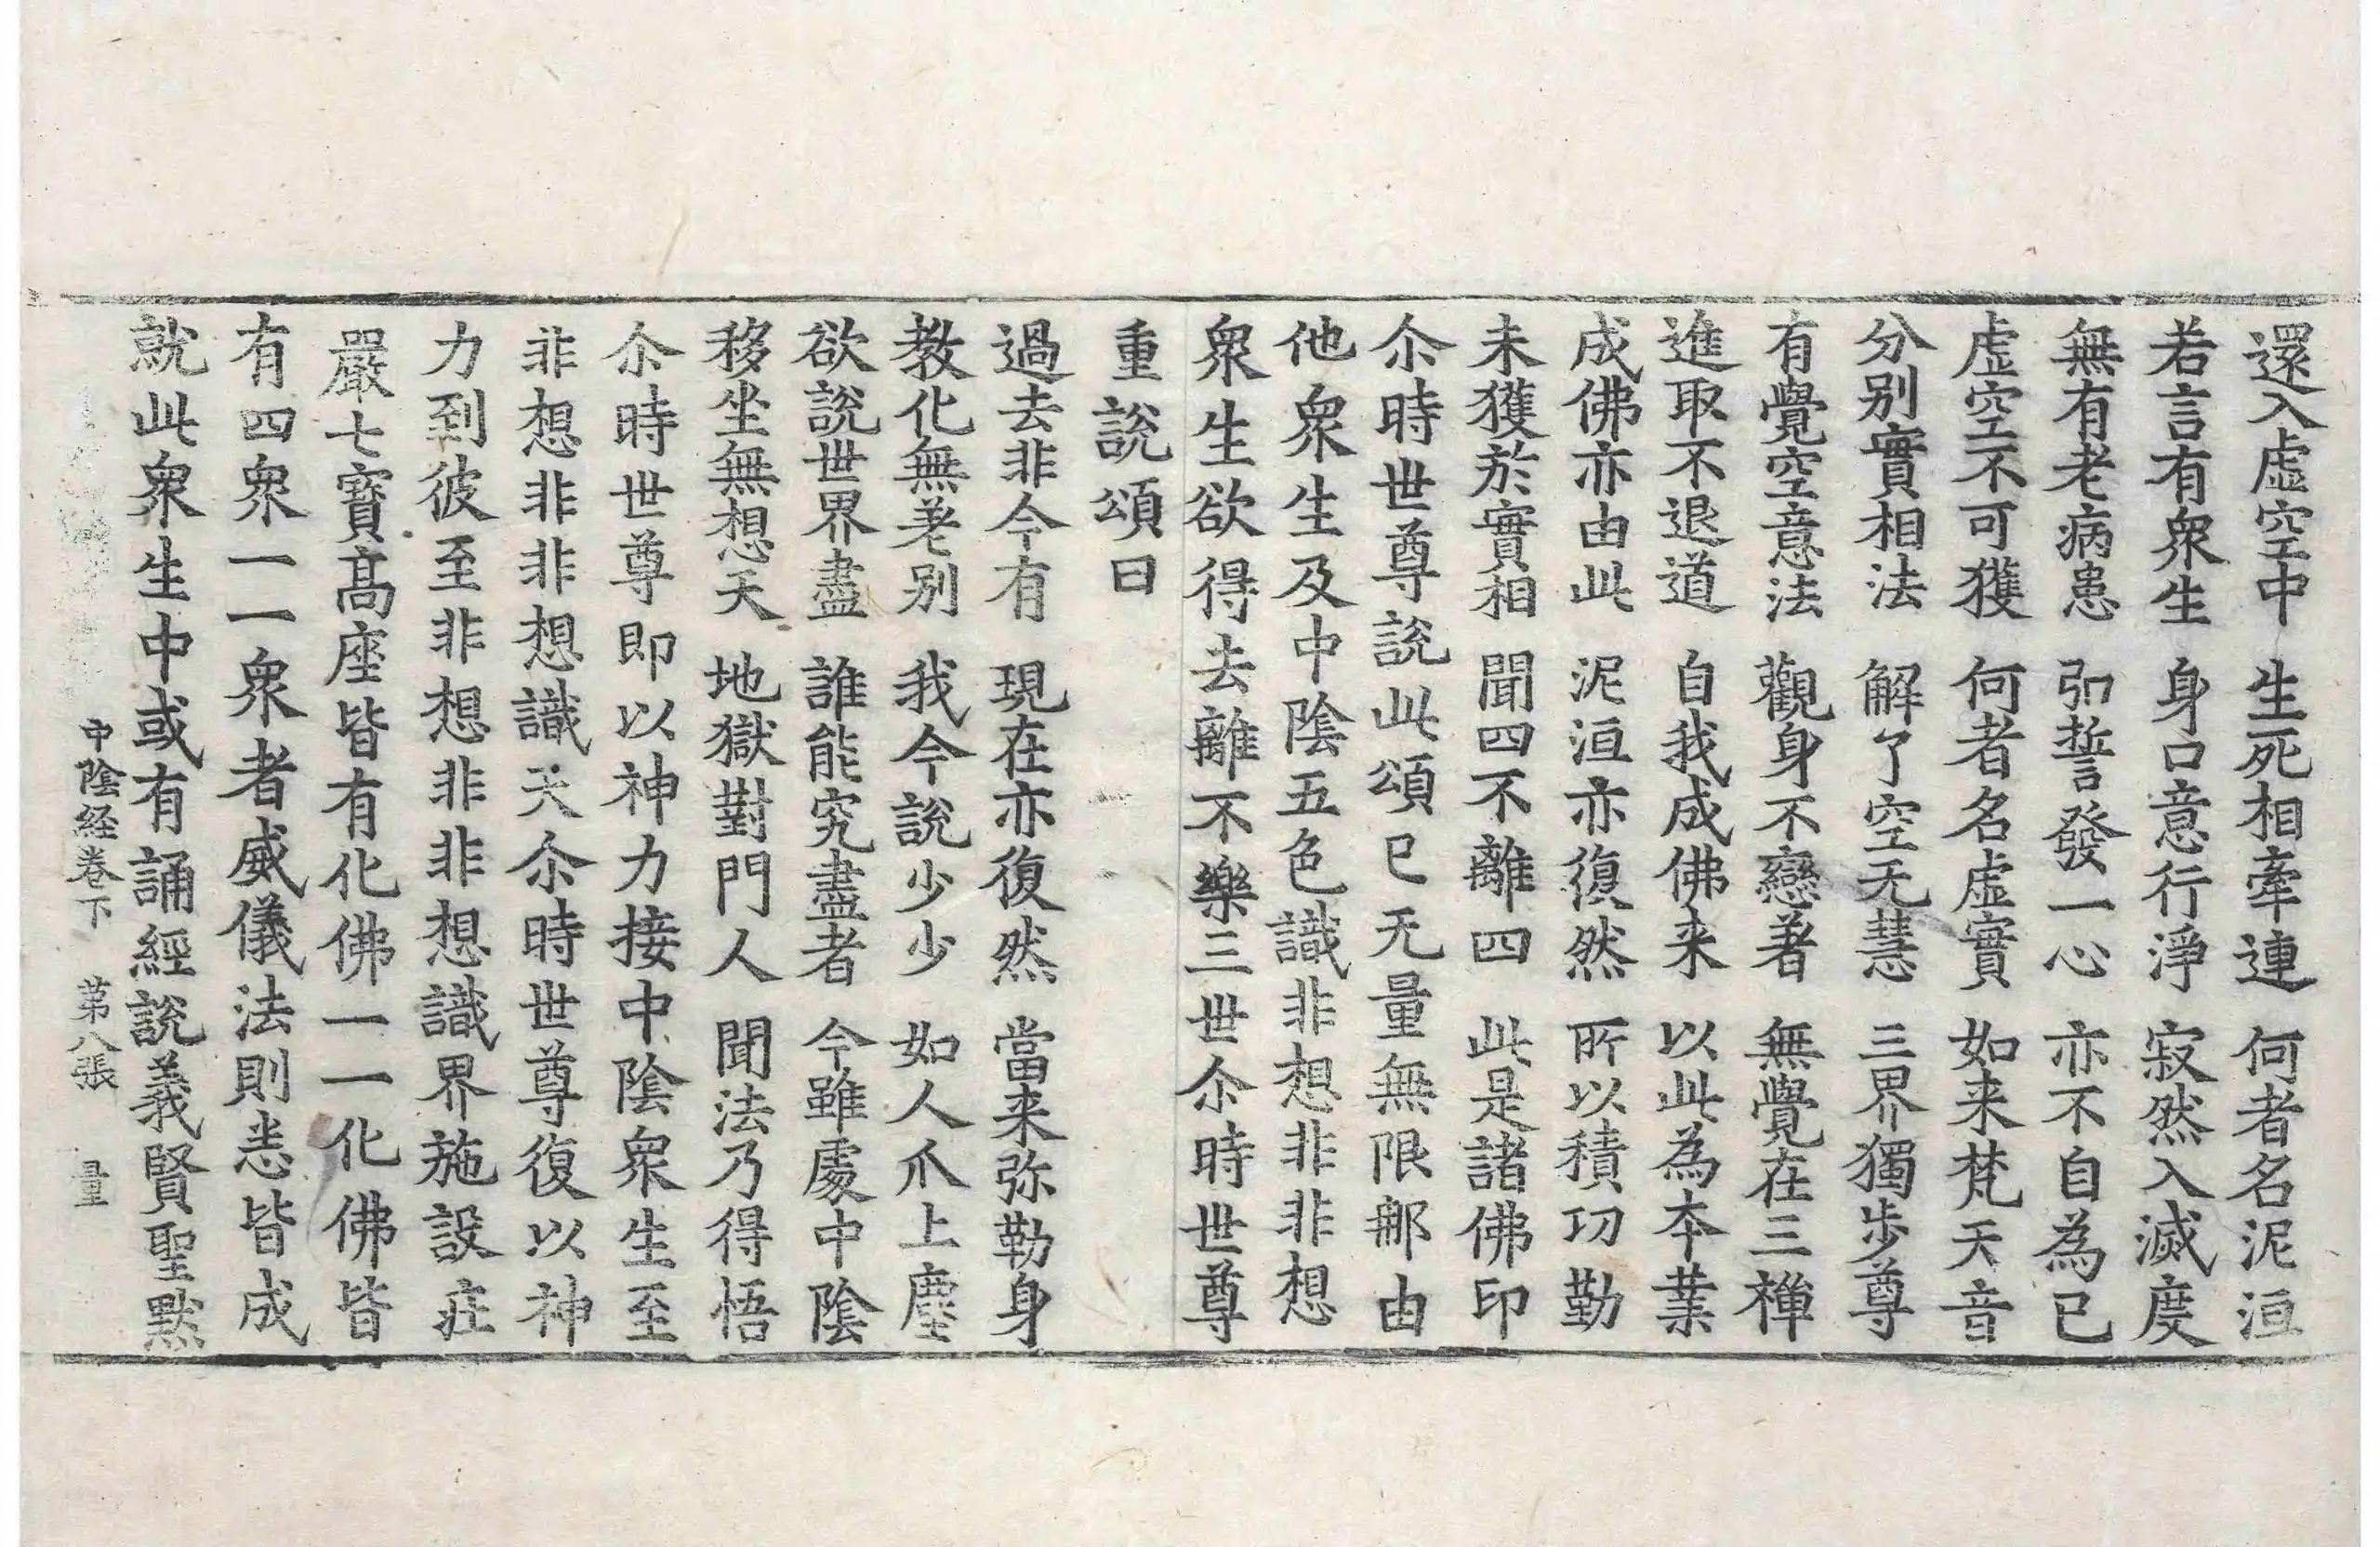 還入虛空中　生死相牽連　何者名泥洹
若言有衆生　身口意行淨　寂然入滅度
無有老病患　弘誓發一心　亦不自為己
虛空不可獲　何者名虛實　如来梵天音
分别實相法　解了空无慧　三界獨步尊
有覺空意法　觀身不戀著　無覺在三禪
進取不退道　自我成佛来　以此為本業
成佛亦由此　泥洹亦復然　所以積功勤
未獲於實相　聞四不離四　此是諸佛印
尒時世尊說此頌已无量無限那由
他衆生及中陰五色識非想非非想
衆生欲得去離不樂三世尒時世尊
重說頌曰
過去非今有　現在亦復然　當来弥勒身
教化無差别　我今說少少　如人爪上塵
欲說世界盡　誰能究盡者　今雖處中陰
移坐無想天　地獄對門人　聞法乃得悟
尒時世尊即以神力接中陰衆生至
非想非非想識天尒時世尊復以神
力到彼至非想非非想識界施設莊
嚴七寶高座皆有化佛一一化佛皆
有四衆一一衆者威儀法則悉皆成
就此衆生中或有誦經說義賢聖黙
中陰経卷下　第八張　量